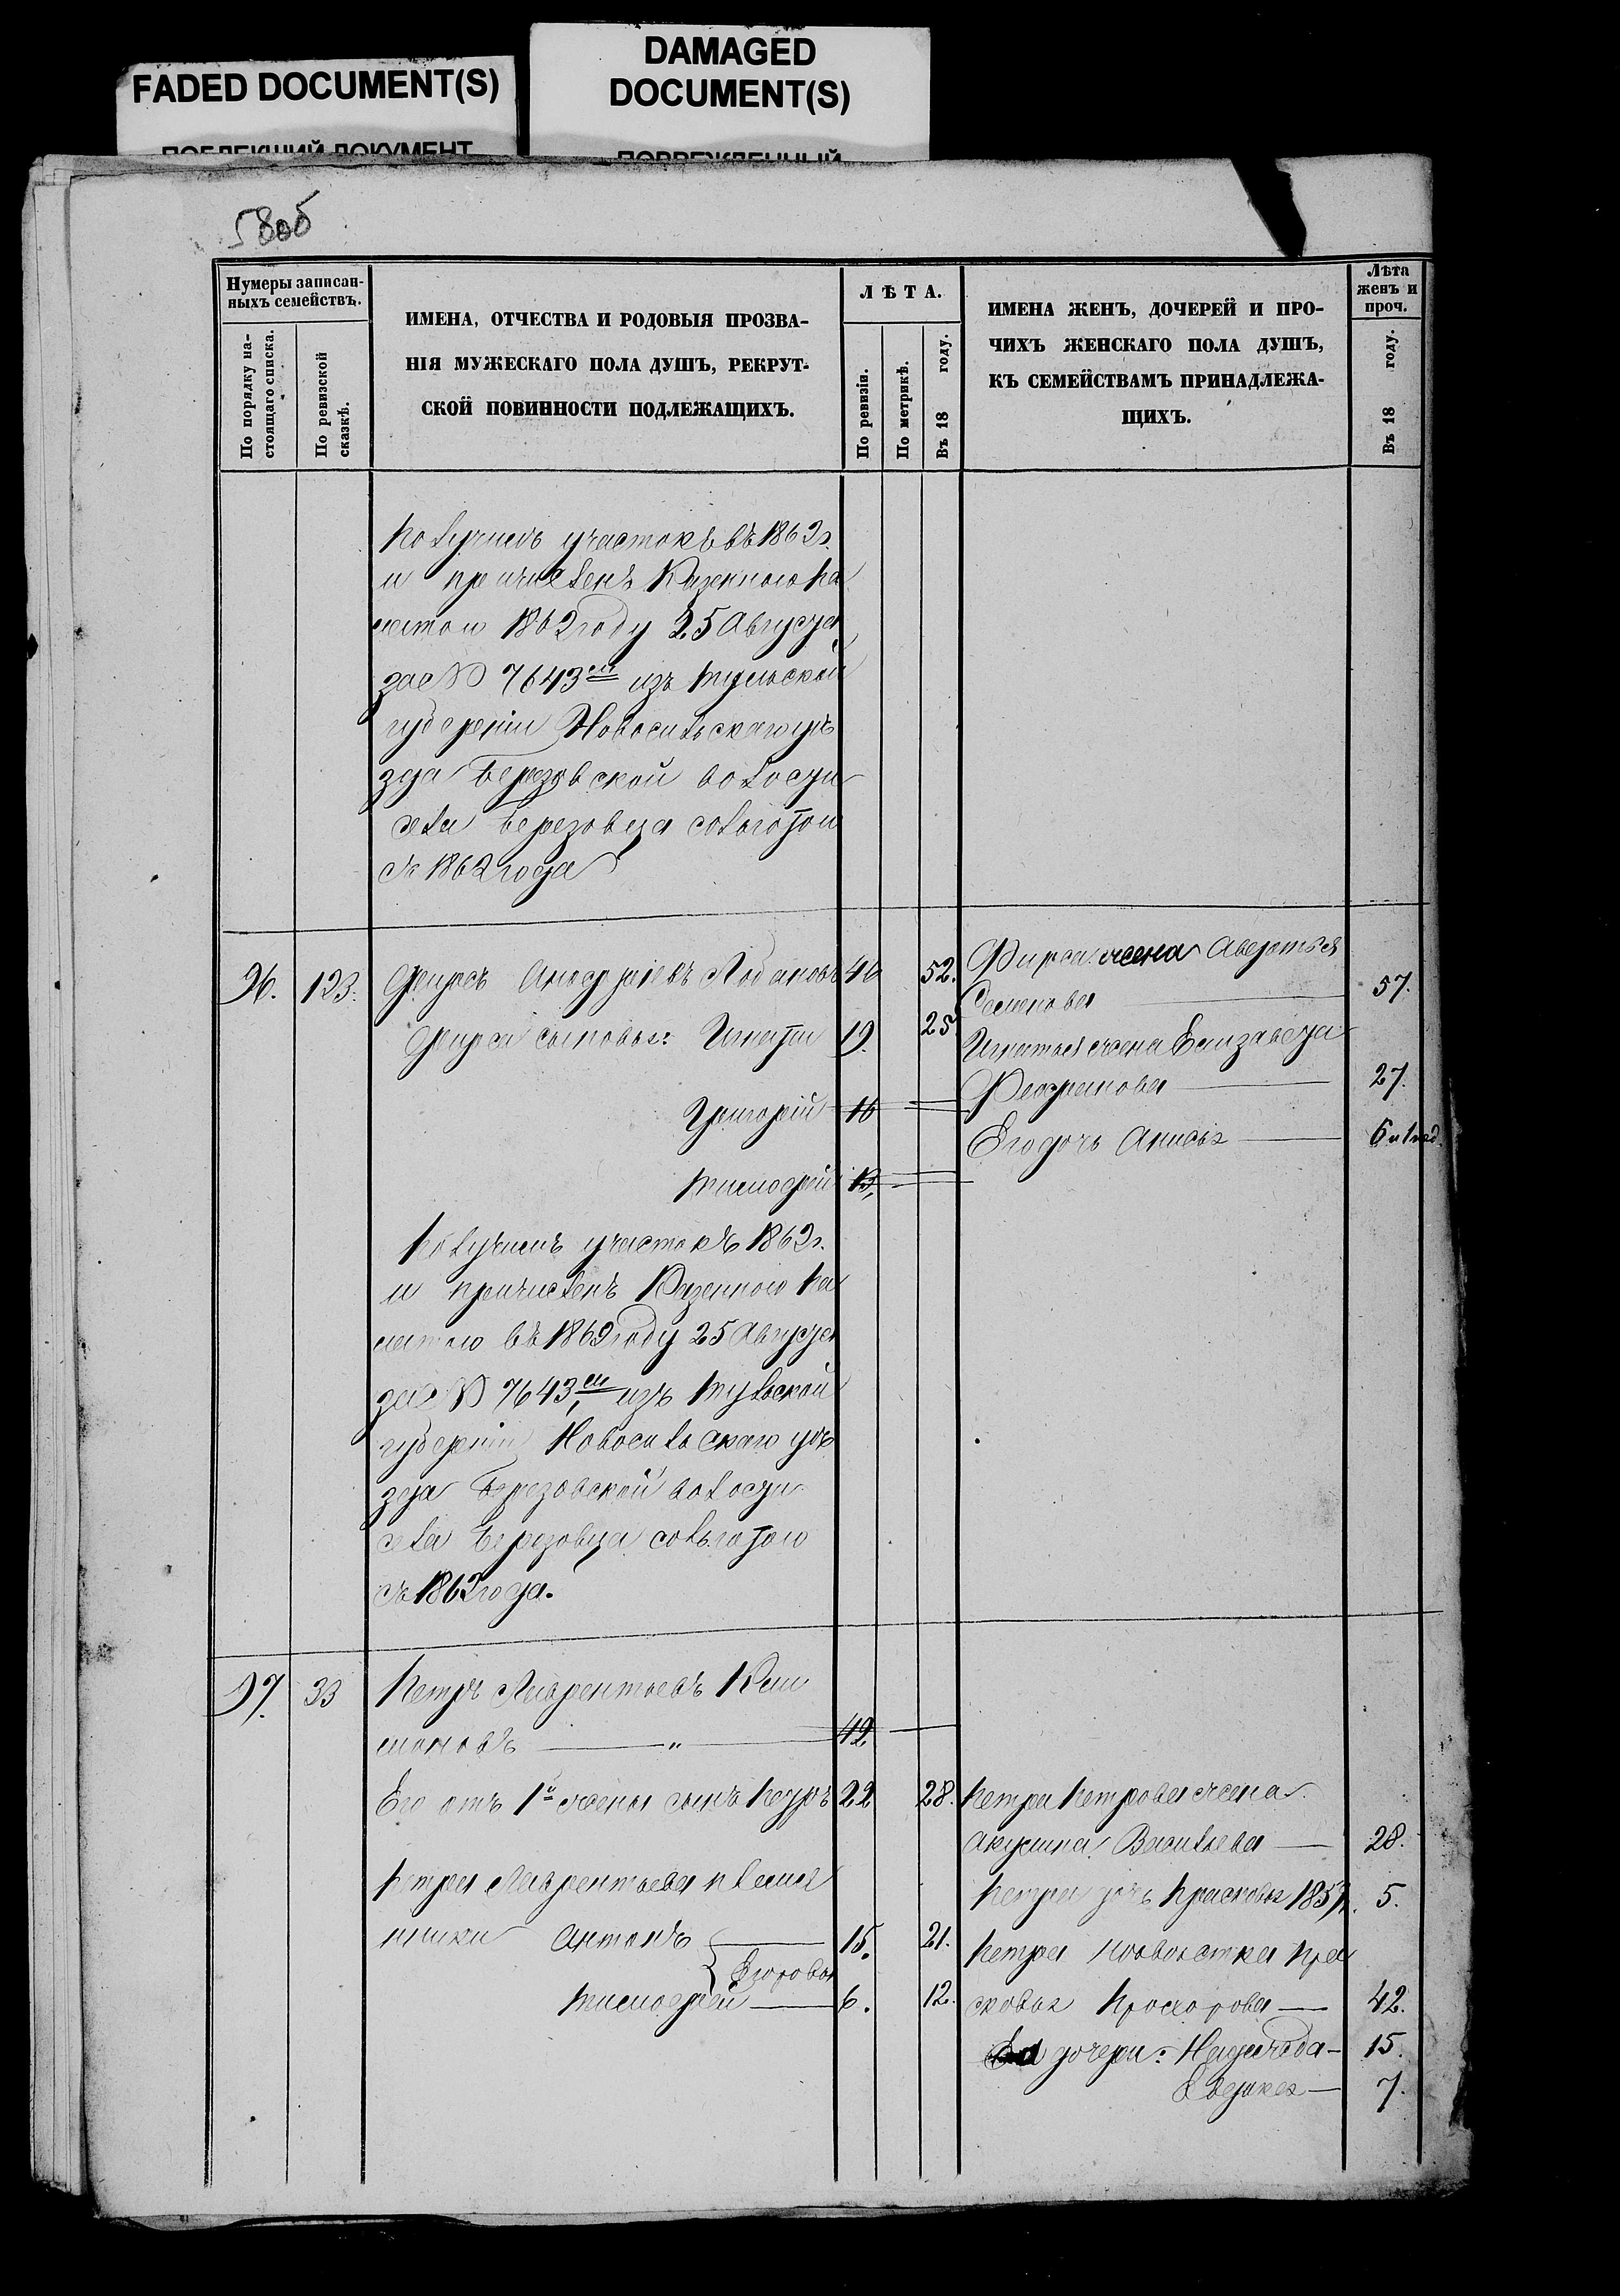 FADED DOCUMENT(S)
ПОБЛЕКШИЙ ДОКУМЕНТ
DAMAGED
DOCUMENT(S)
ПОВРЕЖДЕННЫЙ
58об
Нумеры записан-
ныхъ семействъ.
По порядку на-
стоящаго списка.
По ревизской
сказкѣ.
ИМЕНА, ОТЧЕСТВА И РОДОВЫЯ ПРОЗВА-
НІЯ МУЖЕСКАГО ПОЛА ДУШЪ, РЕКРУТ-
СКОЙ ПОВИННОСТИ ПОДЛЕЖАЩИХЪ.
ЛѢТА.
По ревизіи.
По метрикѣ.
Въ 18 году.
ИМЕНА ЖЕНЪ, ДОЧЕРЕЙ И ПРО-
ЧИХЪ ЖЕНСКАГО ПОЛА ДУШЪ,
КЪ СЕМЕЙСТВАМЪ ПРИНАДЛЕЖА-
ЩИХЪ.
Лѣта
женъ и
проч.
Въ 18 году.
Получилъ участокъ въ 1862 г.
и причисленъ Казенною Па
латою 1862 году 25 Августа
за № 7643м изъ Тульской
губерніи Новосильскаго уѣ
зда Березовской волости
села Березовца сольготою
съ 1862 года
96. 123. Фирсъ Лобановъ 46 52. Фирса жена Авдотья
Семенова 57.
Фирса сыновья: Игнатій 19. 25 Игнатья жена Елизавета
27.
Григорій 16
Его дочь Анисья 6 и 1 нед.
Тимофей 13,
Получилъ участокъ 1862 г.
и причисленъ Казенною Па
латою въ 1862 году 25 Августа
за № 7643м изъ Тульской
губерніи Новосильскаго уѣ
зда Березовской волости
села Березовца сольготою
съ 1862 года.
97. 33 Петръ Лаврентьевъ Кли
мановъ " 42
Его отъ 1й жены сынъ Петръ 22 28. Петра Петрова жена
Акулина Васильева 28.
Петра Лаврентьева племя
Петра дочь Прасковья 1857 г. 5.
нники Антонъ 15. 21. Петра невѣстка Пра
Егоровы
Тимофей 6. 12. сковья Прохорова 42.
Ея дочери: Надежда 15.
Евдокея 7.